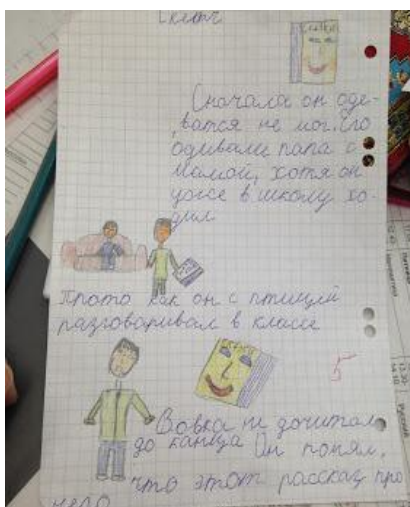 Сначала он оде-
ватся не мог. Его
одивали папа с
мамой, хотя он
уже в школу хо-
дил
Прото как он с птицей
разговаривал в классе
5
Вовка не дочитал
до канца Он понял,
что этот рассказ про
него